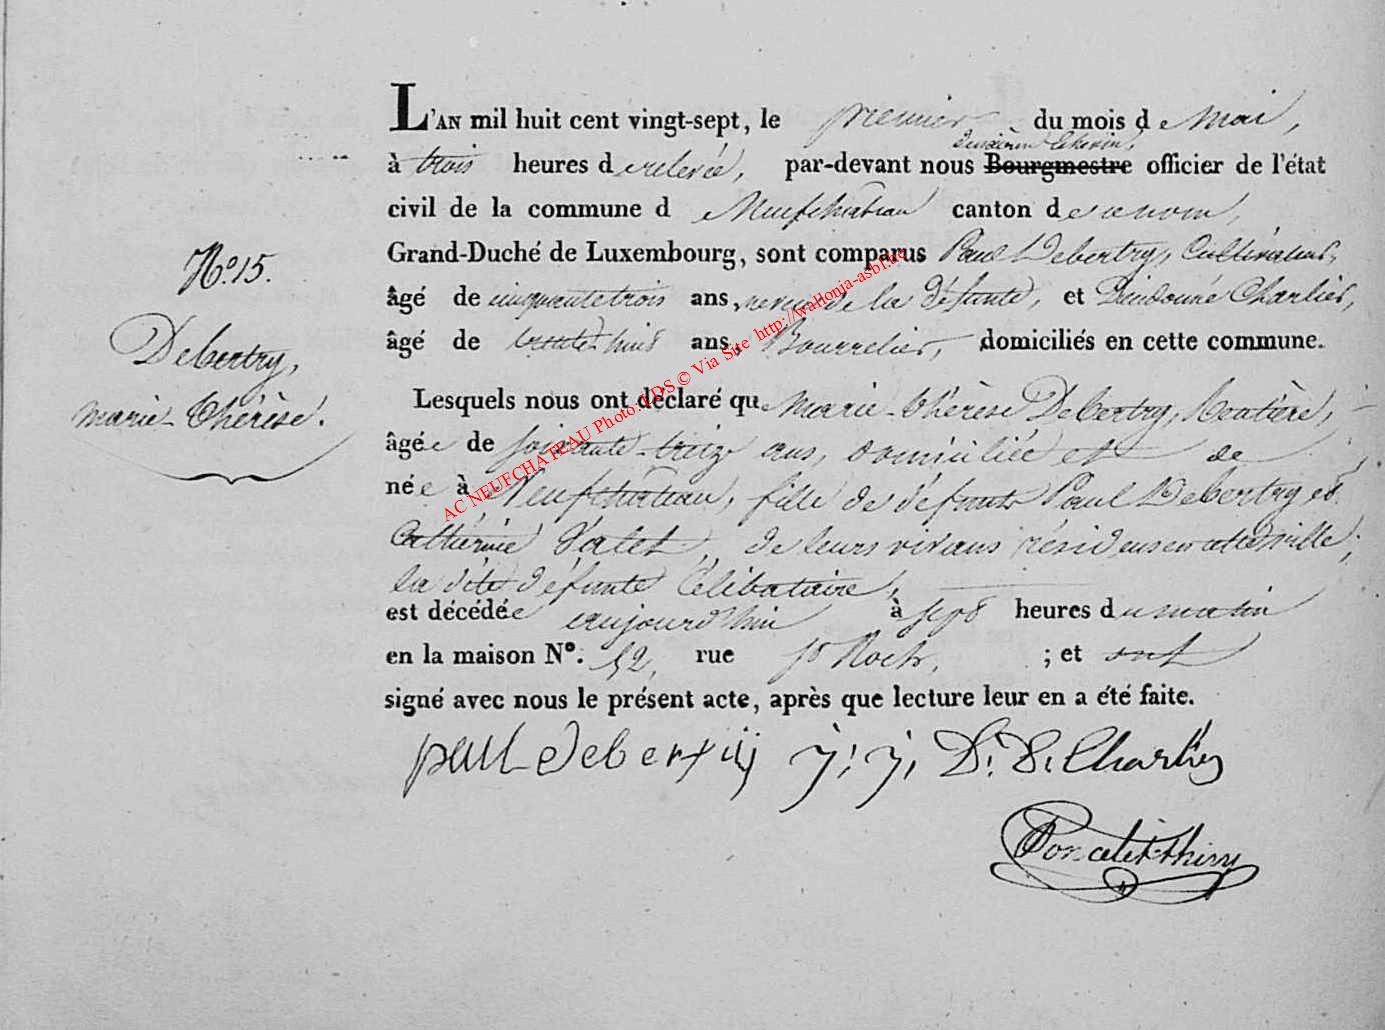 L'AN mil huit cent vingt-sept, le premier du mois de Mai,
deuxième Echevin,
à trois heures de relevée, par-devant nous Bourgmestre officier de l'état
civil de la commune de Neufchateau canton de ce nom,
Grand-Duché de Luxembourg, sont comparus Paul Debertry, Cultivateur,
âgé de cinquante trois ans, neveu de la défunte, et Dieudonné Charlier,
âgé de trente huit ans, Bourrelier, domiciliés en cette commune.
N.o 15.
Debertry,
marie-Thérèse.
Lesquels nous ont déclaré que Marie-Thérèse Debertry, Rentière,
âgée de soixante-treize ans, domiciliée et de
née à Neufchateau, fille de défunts Paul Debertry et
Cathérine Valet, de leurs vivans résidens en cette ville;
la dite défunte Célibataire,
est décédée aujourd'hui à sept heures du matin
en la maison N°. 52, rue St Roch, ; et ont
signé avec nous le présent acte, après que lecture leur en a été faite.
paul deberтrij j. j. D. D. Charlier
Poncelet-Thiry
AC NEUFCHATEAU Photo. LDS © Via Site http://wallonia-asbl.be